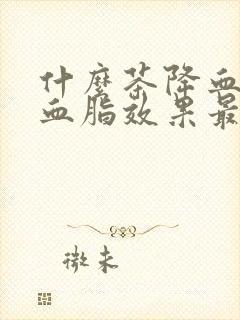 什麼茶降血
血脂效果最
微末